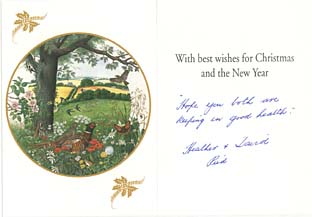 With best wishes for Christmas
and the New Year
"Hope you both are
keeping in good health."
Heather & David
Reid